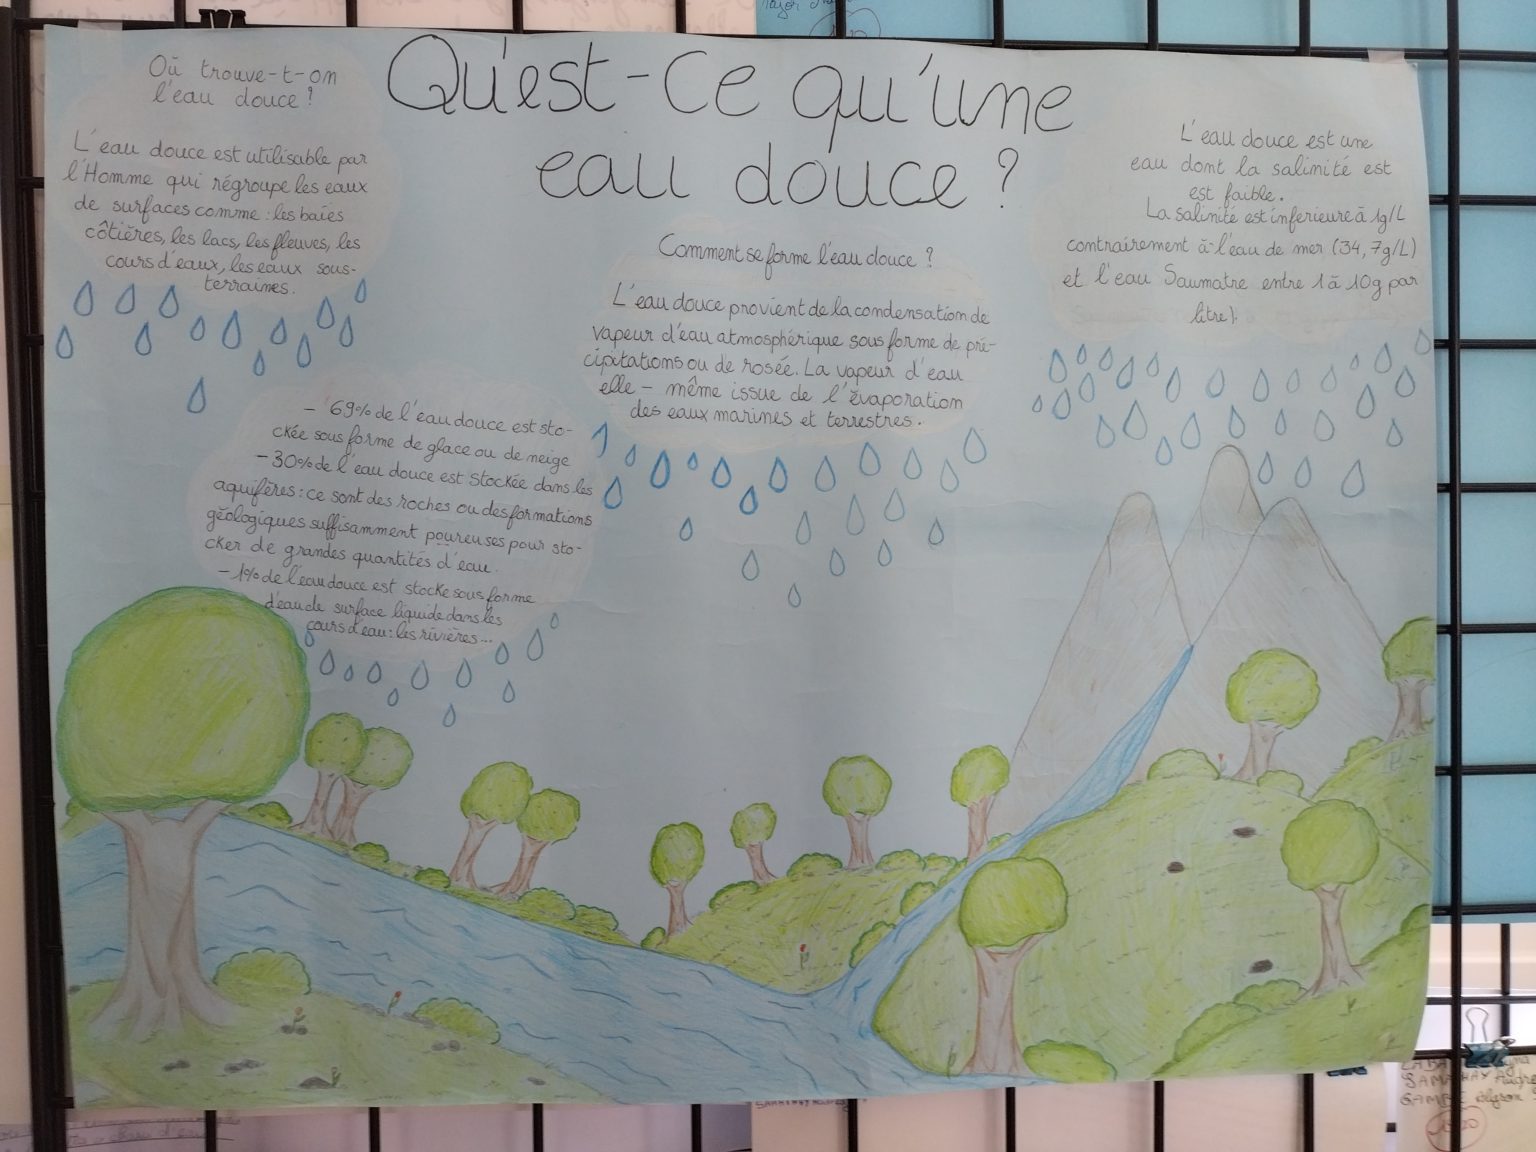 Qu'est-ce qu'une
eau douce ?
Où trouve-t-on
l'eau douce ?
L'eau douce est utilisable par
l'Homme qui régroupe les eaux
de surfaces comme : les baies
côtières, les lacs, les fleuves, les
cours d'eaux, les eaux sous-
terraines.
- 69% de l'eau douce est sto-
ckée sous forme de glace ou de neige
- 30% de l'eau douce est stockée dans les
aquifères : ce sont des roches ou des formations
géologiques suffisamment poureuses pour sto-
cker de grandes quantités d'eau.
- 1% de l'eau douce est stocke sous forme
d'eau de surface liquide dans les
cours d'eau : les rivières...
Comment se forme l'eau douce ?
L'eau douce provient de la condensation de
vapeur d'eau atmosphérique sous forme de pré-
cipitations ou de rosée. La vapeur d'eau
elle - même issue de l'évaporation
des eaux marines et terrestres.
L'eau douce est une
eau dont la salinité est
est faible.
La salinité est inférieure à 1g/L
contrairement à l'eau de mer (34,7g/L)
et l'eau Saumatre entre 1 à 10g par
litre).